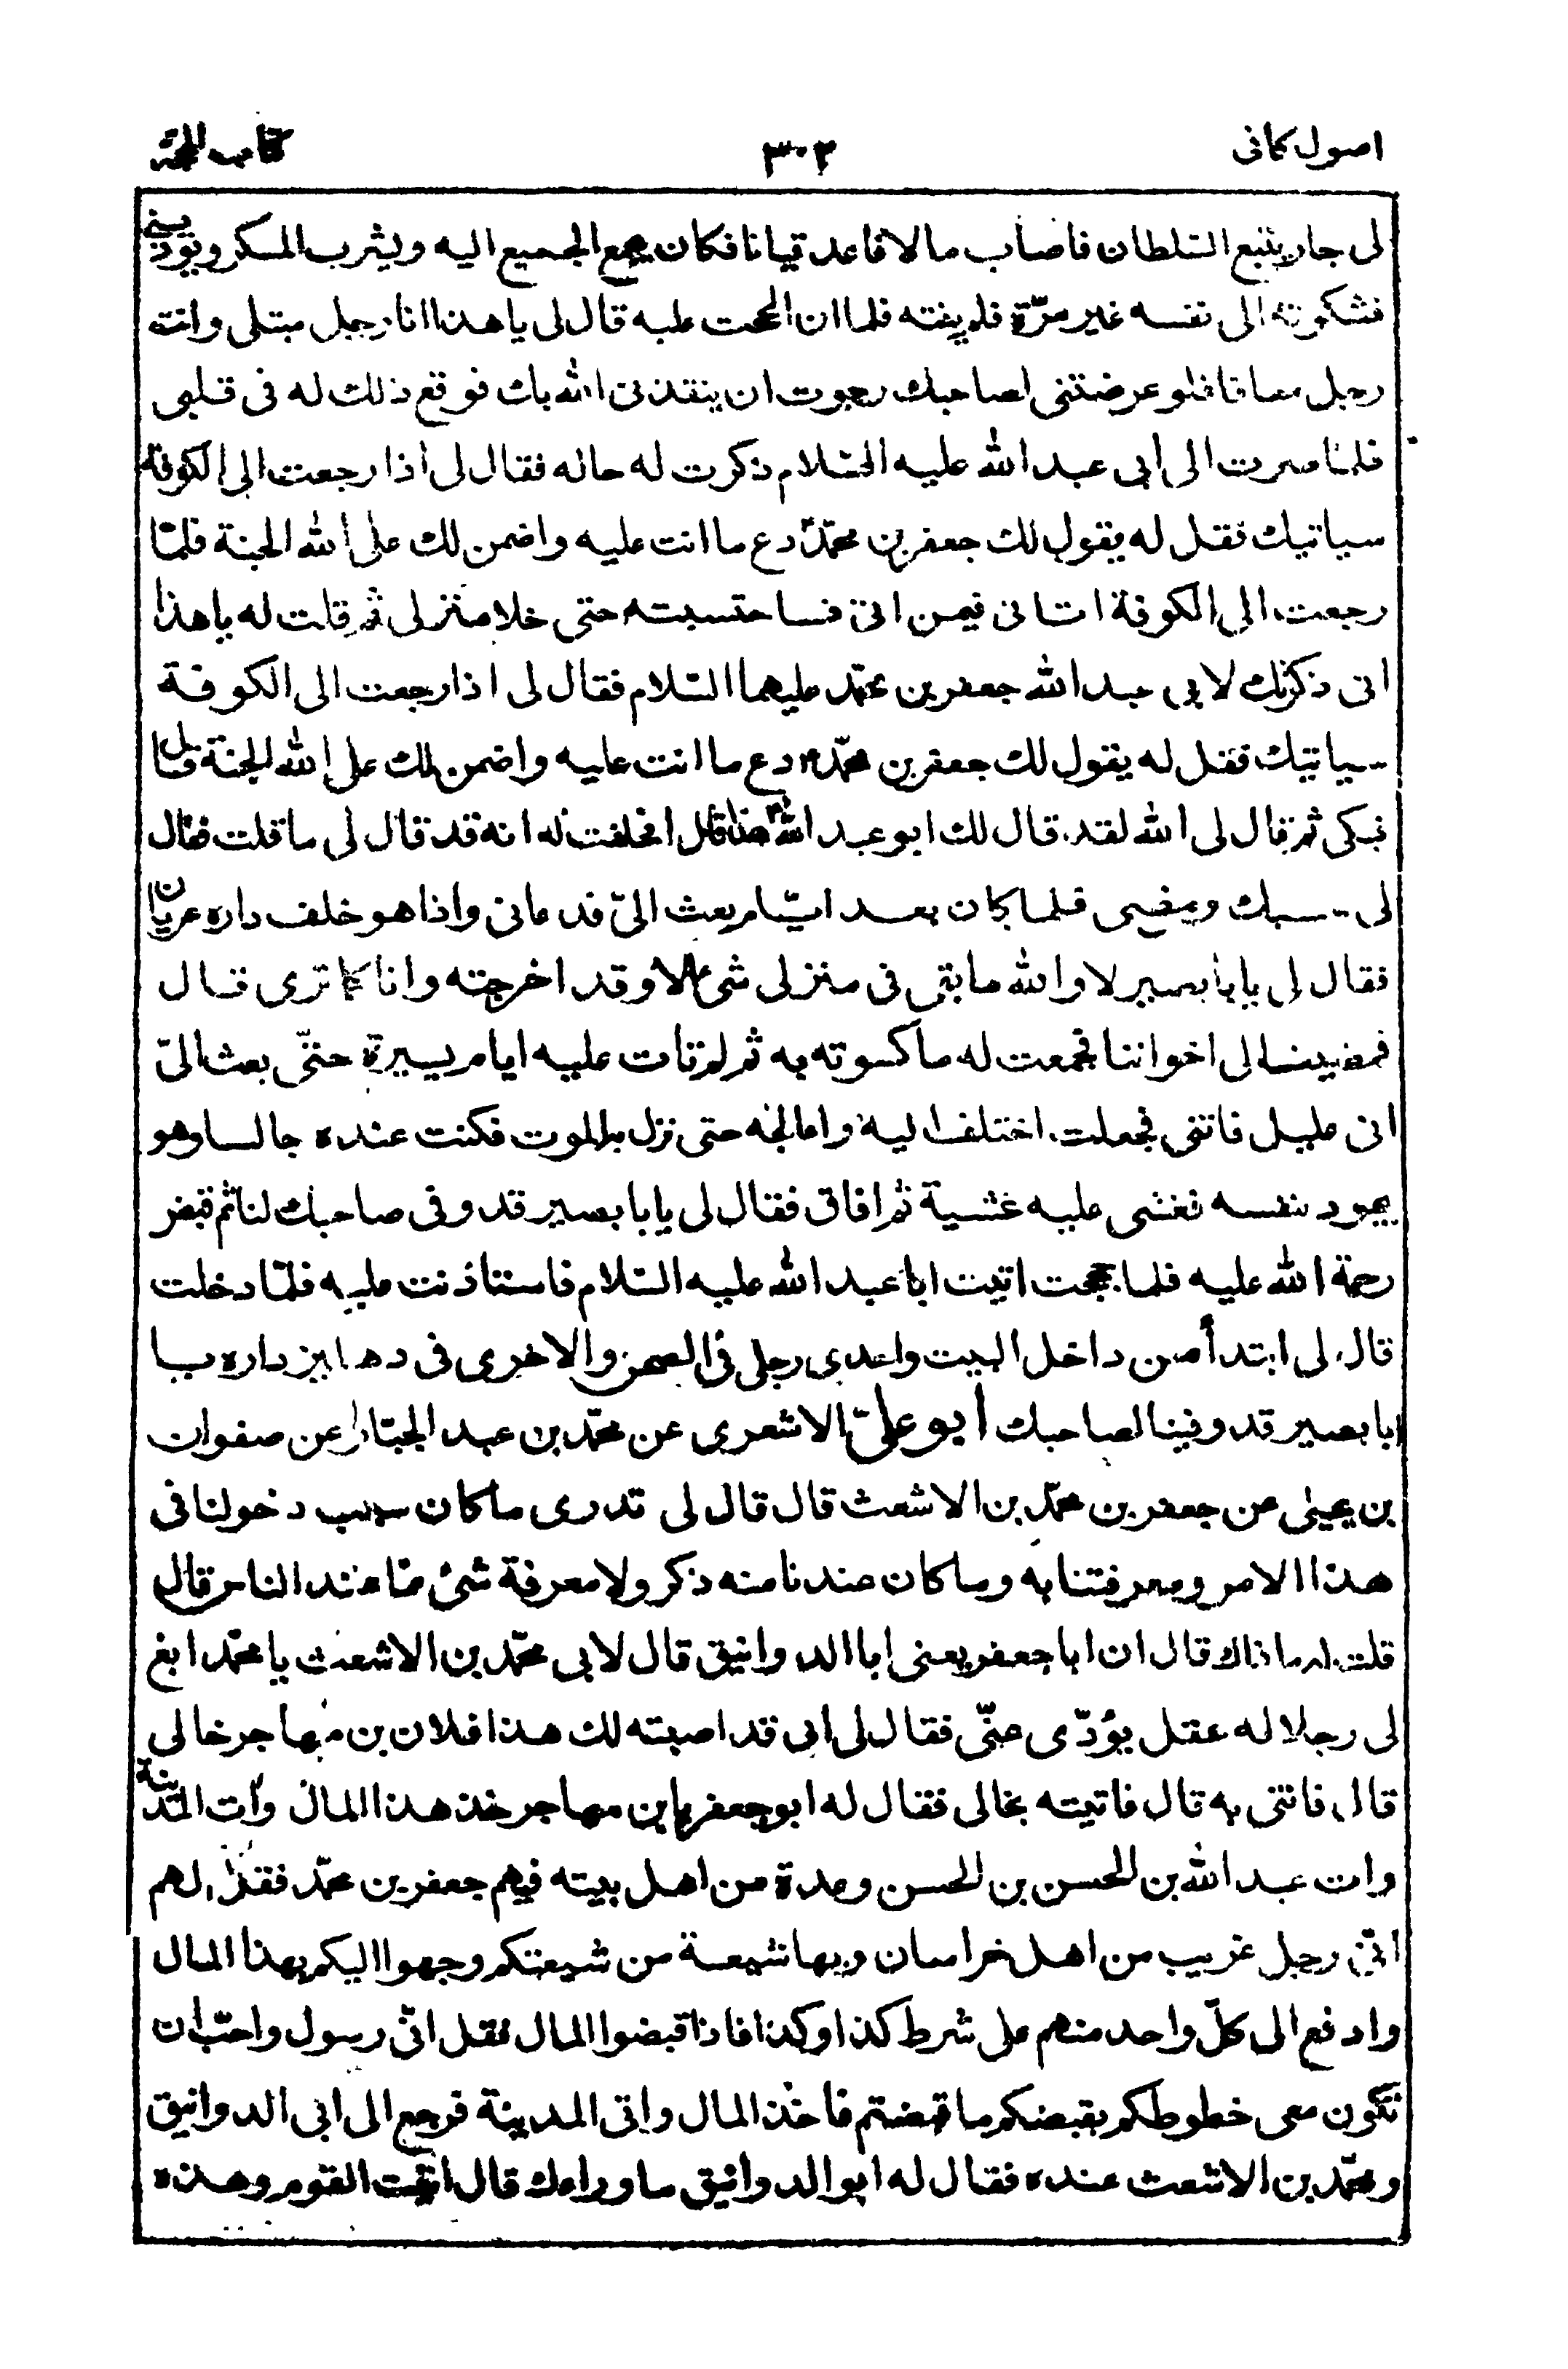 اصول کافی
۳۰۲
کتاب الحجة
لی جار یتبع السّلطان فاصاب مالا فاعد قیانا فکان یجمع الجمیع الیه ویشرب المسکر ویؤذینی
فشکوته الی نفسه غیر مرّة فلم ینته فلما ان الححت علیه قال لی یا هذا انا رجل مبتلی وانت
رجل معافا فلو عرضتنی لصاحبك رجوت ان ینقذنی الله بك فوقع ذلك له فی قلبی
فلمّا صرت الی ابی عبد الله علیه السّلام ذکرت له حاله فقال لی اذا رجعت الی الکوفة
سیاتیك فقل له یقول لك جعفر بن محمّد دع ما انت علیه واضمن لك علی الله الجنة فلمّا
رجعت الی الکوفة اتانی فیمن اتی فاحتسبته حتی خلا منزلی ثم قلت له یا هذا
انی ذکرتك لابی عبد الله جعفر بن محمّد علیهما السّلام فقال لی اذا رجعت الی الکوفة
سیاتیك فقل له یقول لك جعفر بن محمّد دع ما انت علیه واضمن لك علی الله الجنة قال
فبکی ثم قال لی الله لقد قال لك ابو عبد الله هذا قال فحلفت له انه قد قال لی ما قلت فقال
لی حسبك ومضی فلما کان بعد ایّام بعث الیّ فدعانی واذا هو خلف داره عریان
فقال لی یا بابصیر لا والله ما بقی فی منزلی شیء الا وقد اخرجته وانا کما تری قال
فمضیت الی اخواننا فجمعت له ما کسوته به ثم لم تات علیه ایام یسیرة حتّی بعث الیّ
انی علیل فاتنی فجعلت اختلف الیه واعالجه حتی نزل به الموت فکنت عنده جالسا وهو
یجود بنفسه فغشی علیه غشیة ثم افاق فقال لی یا بابصیر قد وفی صاحبك لنا ثم قبض
رحمة الله علیه فلما حججت اتیت ابا عبد الله علیه السّلام فاستاذنت علیه فلمّا دخلت
قال لی ابتدأ من داخل البیت واحدی رجلی فی الصحن والاخری فی دهلیز داره یا
ابا بصیر قد وفینا لصاحبك ابو علیّ الاشعری عن محمّد بن عبد الجبّار عن صفوان
بن یحیی عن جعفر بن محمّد بن الاشعث قال قال لی تدری ما کان سبب دخولنا فی
هذا الامر ومعرفتنا به وما کان عندنا منه ذکر ولا معرفة شئ ممّا عند الناس قال
قلت له ما ذاك قال ان ابا جعفر یعنی ابا الدوانیق قال لابی محمّد بن الاشعث یا محمّد ابغ
لی رجلا له عقل یؤدّی عنّی فقال لی ابی قد اصبته لك هذا فلان بن مهاجر خالی
قال فاتنی به قال فاتیته بخالی فقال له ابو جعفر یا بن مهاجر خذ هذا المال وأت المدینة
وات عبد الله بن الحسن بن الحسن وعدة من اهل بیته فیهم جعفر بن محمّد فقل لهم
انّی رجل غریب من اهل خراسان وبها شیعة من شیعتکم وجهوا الیکم بهذا المال
وادفع الی کلّ واحد منهم علی شرط کذا وکذا فاذا قبضوا المال فقل انّی رسول واحبّ ان
تکون معی خطوطکم بقبضکم ما قبضتم فاخذ المال واتی المدینة فرجع الی ابی الدوانیق
ومحمّد بن الاشعث عنده فقال له ابو الدوانیق ما وراءك قال اتیت القوم وهذه